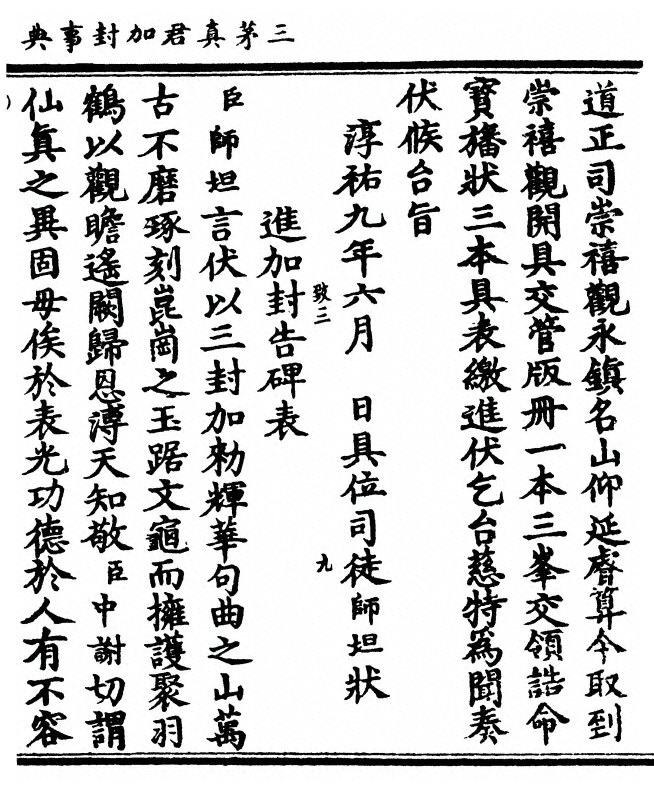 三茅真君加封事典
道正司崇禧觀永鎮名山仰延睿算今取到
崇禧觀開具交管版冊一本三峯交領誥命
寳旛狀三本具表繳進伏乞台慈特爲聞奏
伏候台旨
淳祐九年六月　日具位司徒師坦狀
致三
九
進加封告碑表
臣師坦言伏以三封加勑輝華句曲之山萬
古不磨琢刻崑崗之玉踞文龜而擁護聚羽
鶴以觀瞻遙闕歸恩溥天知敬臣中謝切謂
仙眞之異固毋俟於表光功德於人有不容